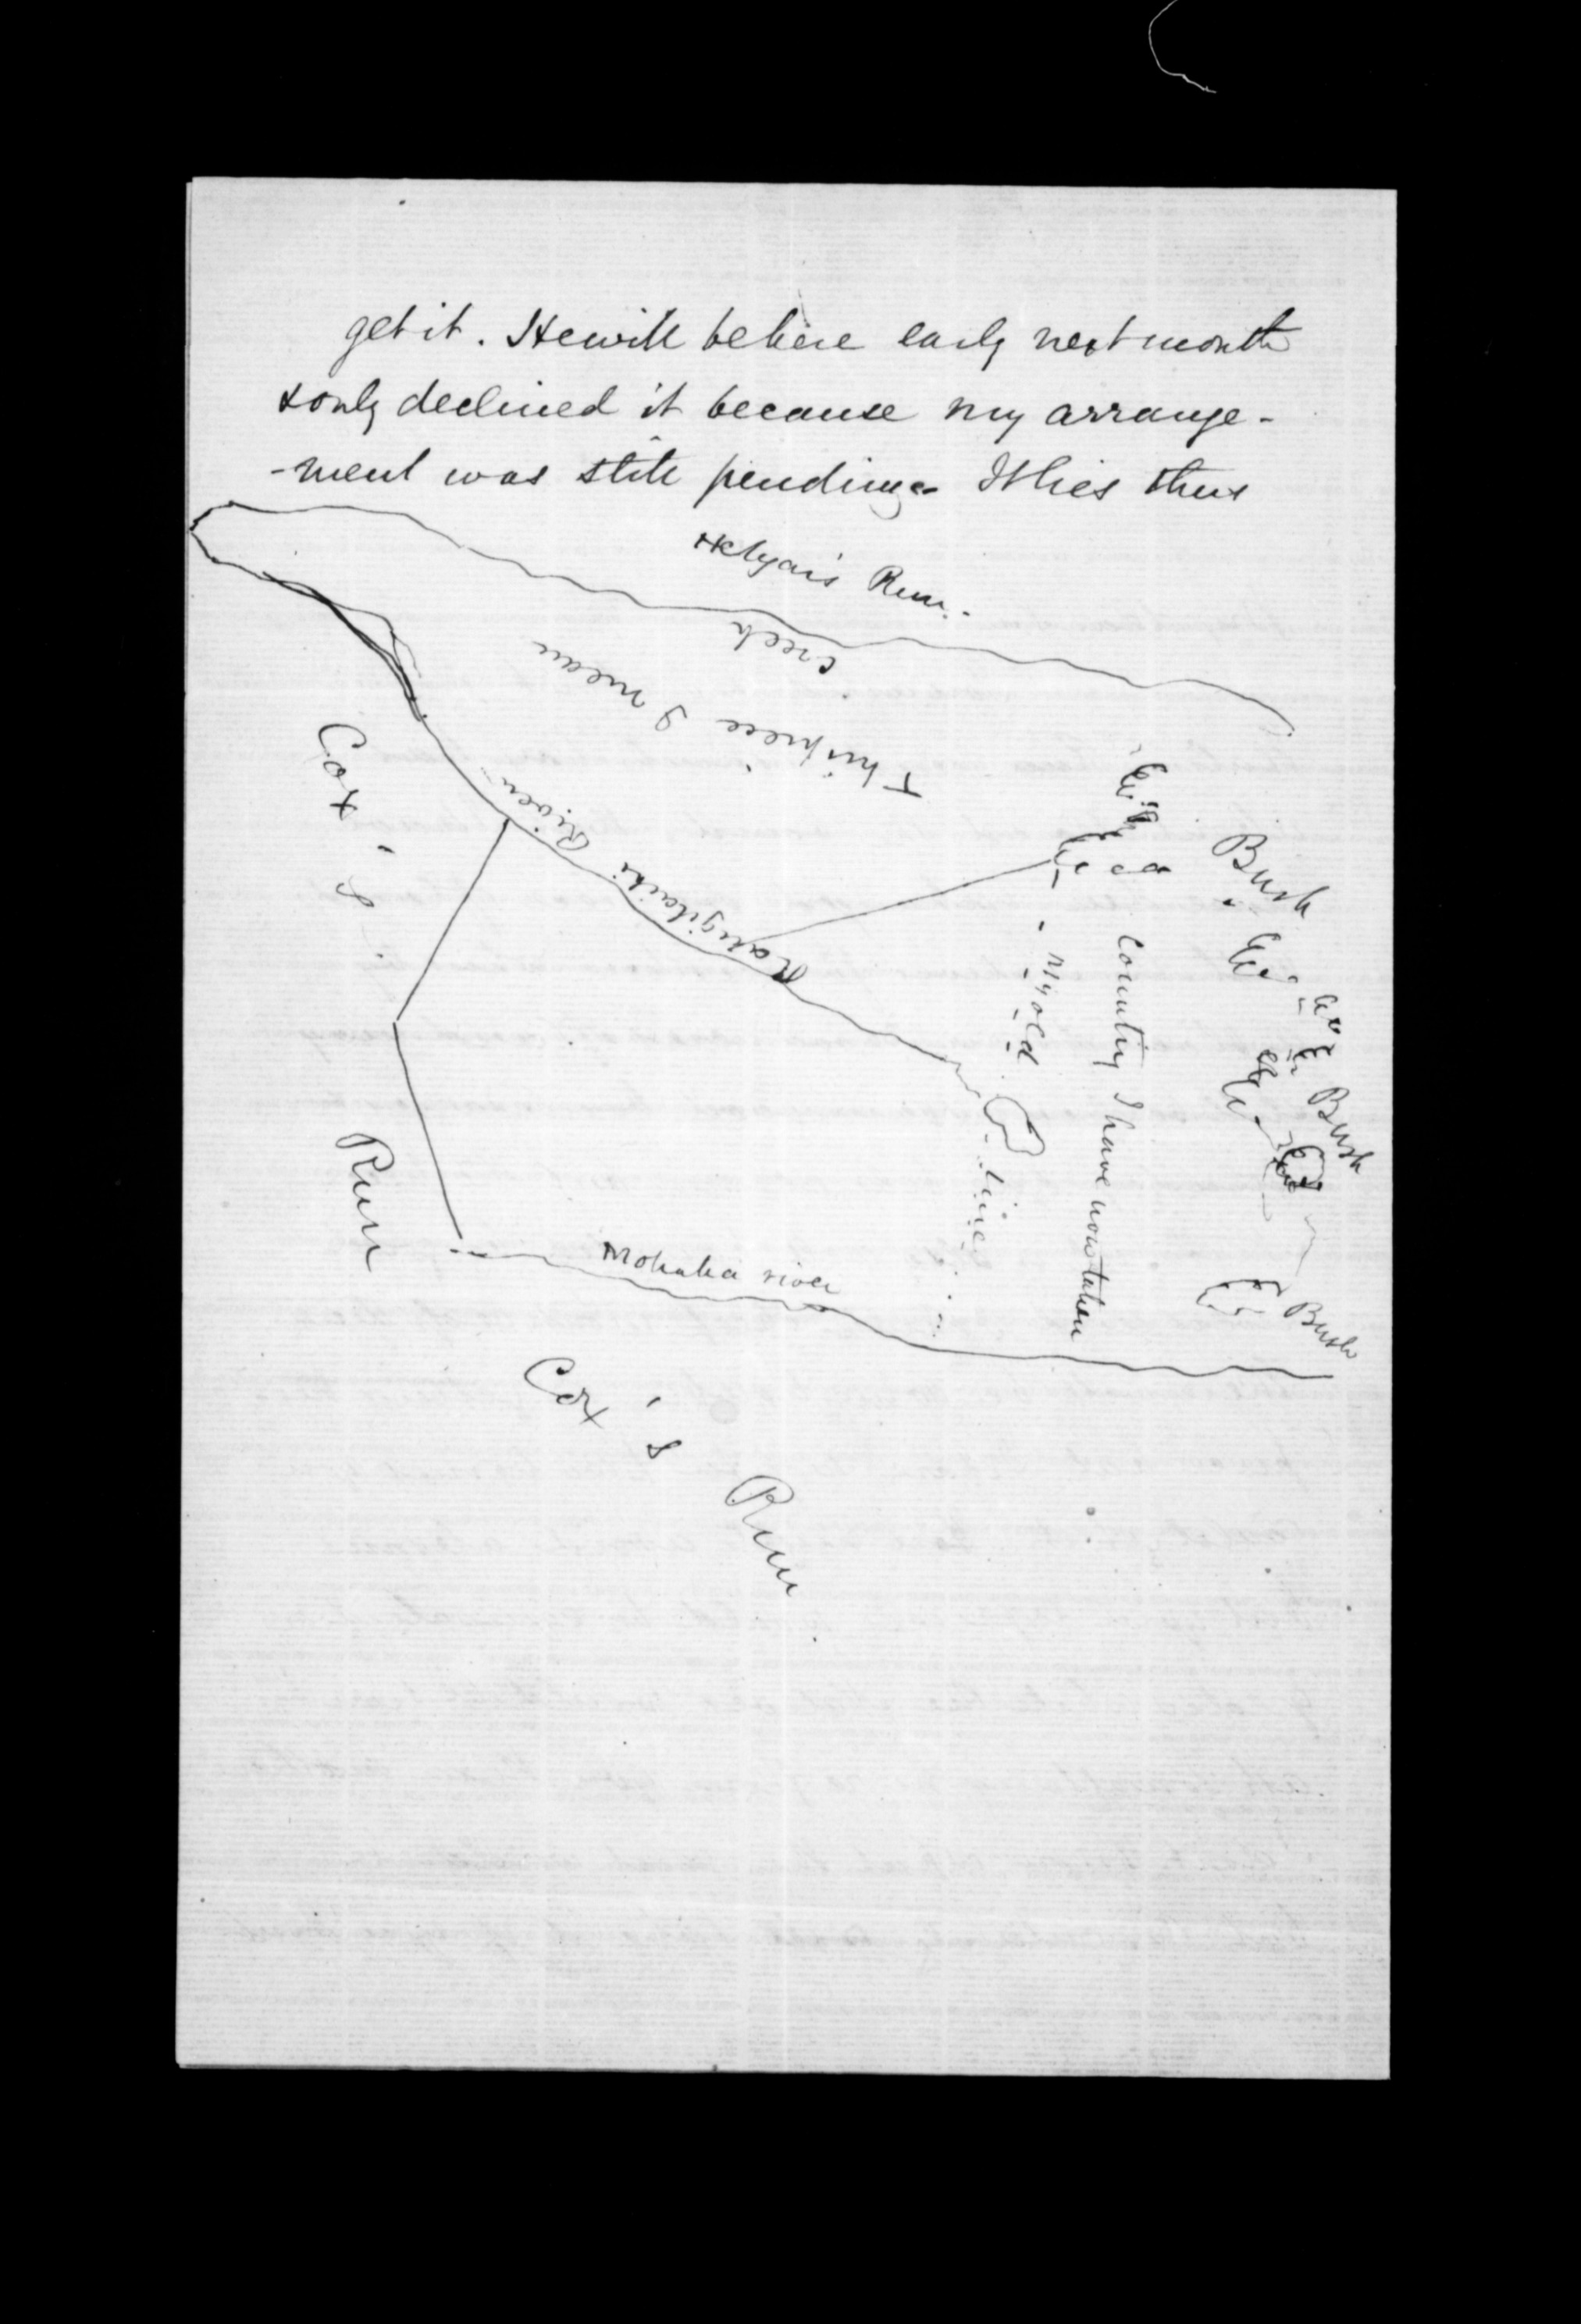 get it. He will be here early next month
& only declined it because my arrange-
-ment was still pending - It lies thus
Helyar's Run.
creek
This piece I mean
Rangitaiki River
Cox's Run
Bush
Country I have now taken
My old line
Bush
Mohaka river
Bush
Cox's Run